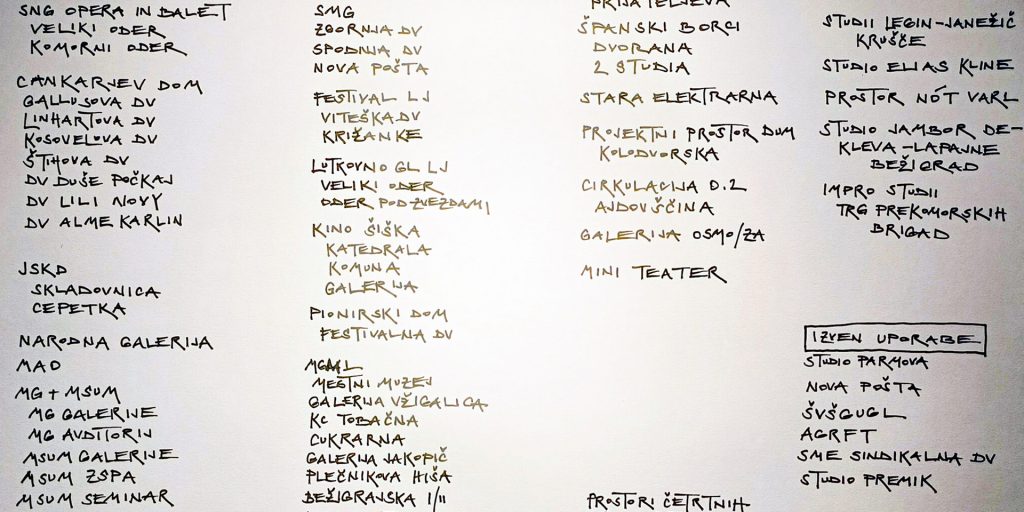 SNG OPERA IN BALET
VELIKI ODER
KOMORNI ODER
CANKARJEV DOM
GALLUSOVA DV
LINHARTOVA DV
KOSOVELOVA DV
ŠTIHOVA DV
DV DUŠE POČKAJ
DV LILI NOVY
DV ALME KARLIN
JSKD
SKLADOVNICA
CEPETKA
NARODNA GALERIJA
MAO
MG + MSUM
MG GALERIJE
MG AVDITORIJ
MSUM GALERIJE
MSUM ZSPA
MSUM SEMINAR
SMG
ZGORNJA DV
SPODNJA DV
NOVA POŠTA
FESTIVAL LJ
VITEŠKA DV
KRIŽANKE
LUTKOVNO GL LJ
VELIKI ODER
ODER POD ZVEZDAMI
KINO ŠIŠKA
KATEDRALA
KOMUNA
GALERIJA
PIONIRSKI DOM
FESTIVALNA DV
MGML
MESTNI MUZEJ
GALERIJA VŽIGALICA
KC TOBAČNA
CUKRARNA
GALERIJA JAKOPIČ
PLEČNIKOVA HIŠA
BEŽIGRAJSKA I/II
PRIJATELJEVA
ŠPANSKI BORCI
DVORANA
2 STUDIA
STARA ELEKTRARNA
PROJEKTNI PROSTOR DUM
KOLODVORSKA
CIRKULACIJA 0.2
AJDOVŠČINA
GALERIJA OSMO/ZA
MINI TEATER
PROSTORI ČETRTNIH
STUDII LEGIN-JANEŽIČ
KRUŠČE
STUDIO ELIAS KLINE
PROSTOR NÓT VARL
STUDIO JAMBOR DE-
KLEVA-LAPAJNE
BEŽIGRAD
IMPRO STUDII
TRG PREKOMORSKIH
BRIGAD
IZVEN UPORABE
STUDIO PARMOVA
NOVA POŠTA
ŠVŠGUGL
AGRFT
SME SINDIKALNA DV
STUDIO PREMIK